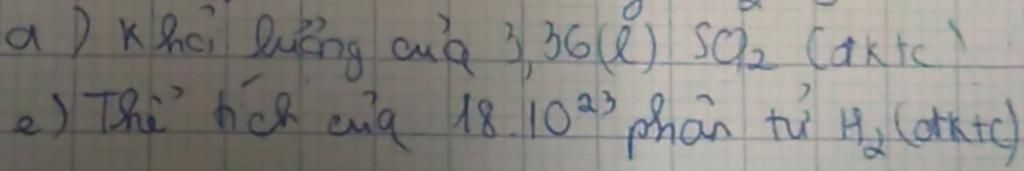 a) Khối lượng của 3,36(l) SO2 (đktc)
e) Thể tích của 18.10^23 phân tử H2 (đktc)